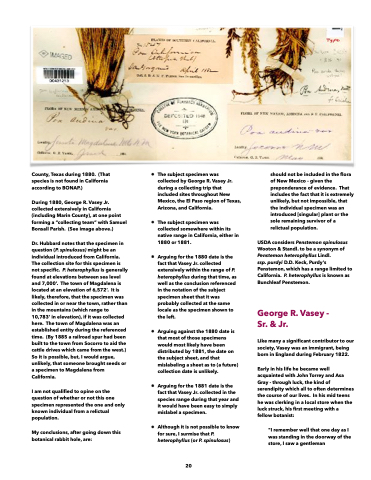 IMAGED
00421213
Poa
San Gregorio April 1882
FLORA OF NEW MEXICO
Poa andina
1881
DEPOSITED 1945
NEW YORK BOTANICAL GARDEN
County, Texas during 1880. (That
species is not found in California
according to BONAP.)
During 1880, George R. Vasey Jr.
collected extensively in California
(including Marin County), at one point
forming a "collecting team" with Samuel
Bonsall Parish. (See image above.)
Dr. Hubbard notes that the specimen in
question (P. spinulosus) might be an
individual introduced from California.
The collection site for this specimen is
not specific. P. heterophyllus is generally
found at elevations between sea level
and 7,000'. The town of Magdalena is
located at an elevation of 6,572'. It is
likely, therefore, that the specimen was
collected in or near the town, rather than
in the mountains (which range to
10,783' in elevation), if it was collected
here. The town of Magdalena was an
established entity during the referenced
time. (By 1885 a railroad spur had been
built to the town from Socorro to aid the
cattle drives which came from the west.)
So it is possible, but, I would argue,
unlikely, that someone brought seeds or
a specimen to Magdalena from
California.
I am not qualified to opine on the
question of whether or not this one
specimen represented the one and only
known individual from a relictual
population.
My conclusions, after going down this
botanical rabbit hole, are:
• The subject specimen was
collected by George R. Vasey Jr.
during a collecting trip that
included sites throughout New
Mexico, the El Paso region of Texas,
Arizona, and California.
• The subject specimen was
collected somewhere within its
native range in California, either in
1880 or 1881.
• Arguing for the 1880 date is the
fact that Vasey Jr. collected
extensively within the range of P.
heterophyllus during that time, as
well as the conclusion referenced
in the notation of the subject
specimen sheet that it was
probably collected at the same
locale as the specimen shown to
the left.
• Arguing against the 1880 date is
that most of those specimens
would most likely have been
distributed by 1881, the date on
the subject sheet, and that
mislabeling a sheet as to (a future)
collection date is unlikely.
• Arguing for the 1881 date is the
fact that Vasey Jr. collected in the
species range during that year and
it would have been easy to simply
mislabel a specimen.
• Although it is not possible to know
for sure, I surmise that P.
heterophyllus (or P. spinulosus)
should not be included in the flora
of New Mexico - given the
preponderance of evidence. That
includes the fact that it is extremely
unlikely, but not impossible, that
the individual specimen was an
introduced [singular] plant or the
sole remaining survivor of a
relictual population.
USDA considers Penstemon spinulosus
Wooton & Standl. to be a synonym of
Penstemon heterophyllus Lindl.
ssp. purdyi D.D. Keck, Purdy's
Penstemon, which has a range limited to
California. P. heterophyllus is known as
Bunchleaf Penstemon.
George R. Vasey -
Sr. & Jr.
Like many a significant contributor to our
society, Vasey was an immigrant, being
born in England during February 1822.
Early in his life he became well
acquainted with John Torrey and Asa
Gray - through luck, the kind of
serendipity which all to often determines
the course of our lives. In his mid teens
he was clerking in a local store when the
luck struck, his first meeting with a
fellow botanist:
"I remember well that one day as I
was standing in the doorway of the
store, I saw a gentleman
20